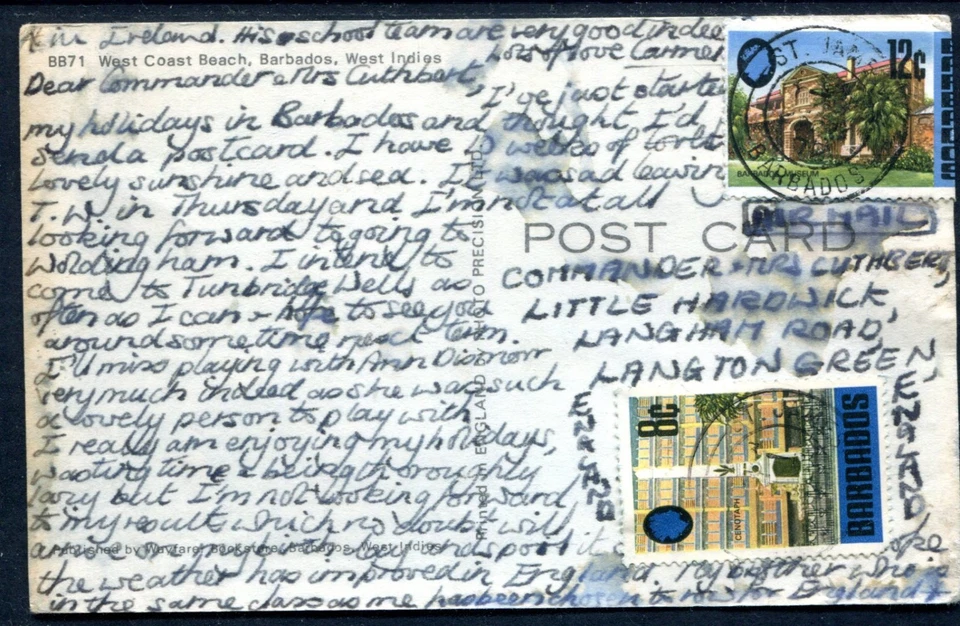 & in Ireland. His school team are very good indeed
Lots of love Carmen
BB71 West Coast Beach, Barbados, West Indies
Dear Commander & Mrs Cuthbert,
I've just started
my holidays in Barbados and thought I'd
send a postcard. I have 10 weeks of
lovely sunshine and sea. I was sad leaving
T.W. in Thursday and I'm not at all
looking forward to going to
Woldingham. I intend to
come to Tunbridge Wells as
often as I can & hope to see you
around sometime next term.
I'll miss playing with Ann
very much indeed as she was such
a lovely person to play with.
I really am enjoying my holidays,
wasting time & being thoroughly
lazy but I'm not looking forward
to my results which no doubt will
the weather has improved in England. My brother who is
in the same class as me has been chosen to for England &
Published by Wayfarer Bookstore, Barbados, West Indies
Printed in ENGLAND PRECISION LTD
POST CARD
AIR MAIL
COMMANDER & MRS CUTHBERT,
LITTLE HARDWICK,
LANGHAM ROAD,
LANGTON GREEN,
ENGLAND
ENGLAND
12c
BARBADOS MUSEUM
BARBADOS
ST. JAMES
BARBADOS
8c
CENOTAPH
BARBADOS